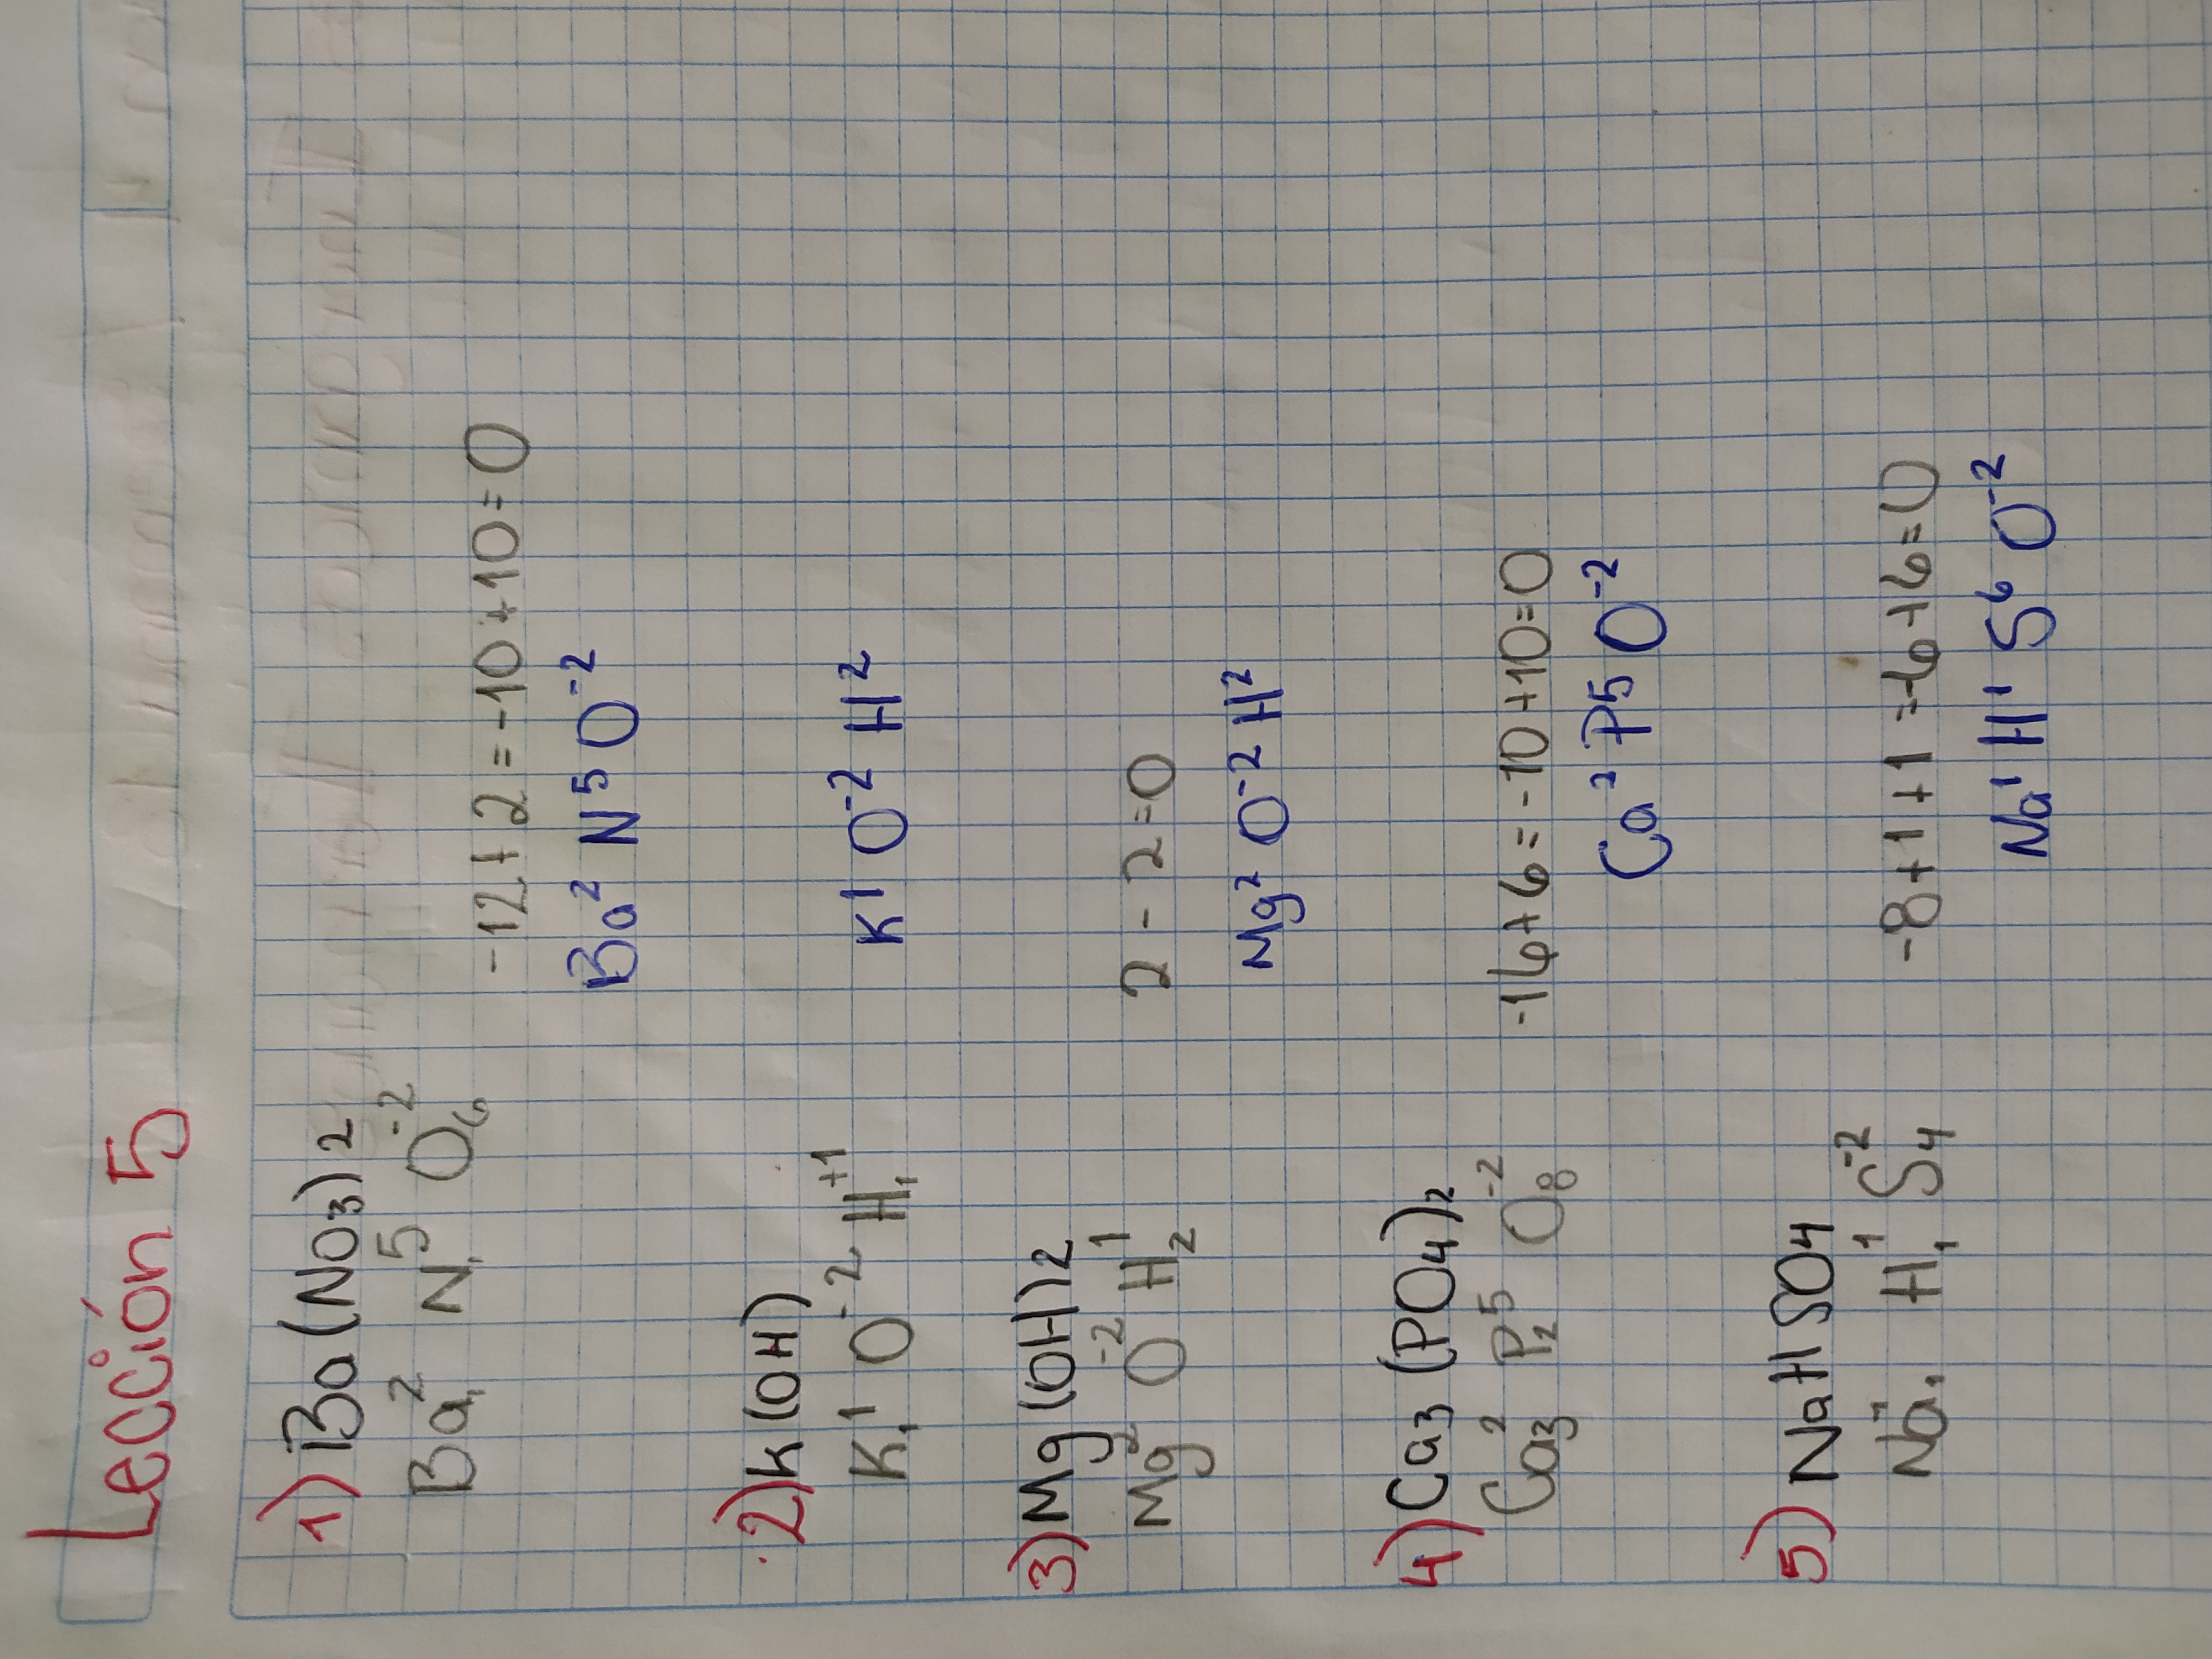 Lección 5
1) Ba(NO₃)2
Ba₁² N₁⁵ O₆⁻²
-12+2=-10+10=0
Ba² N⁵ O⁻²
2) K(OH)
K₁¹ O⁻² H₁⁺¹
K¹ O⁻² H²
3) Mg(OH)2
Mg² O⁻² H₂¹
2-2=0
Mg² O⁻² H²
4) Ca₃(PO₄)₂
Ca₃² P₂⁵ O₈⁻²
-16+6=-10+10=0
Ca² P5 O⁻²
5) NaHSO4
Na₁¹ H₁¹ S₄⁻²
-8+1+1=-6+6=0
Na¹ H¹ S⁶ O⁻²